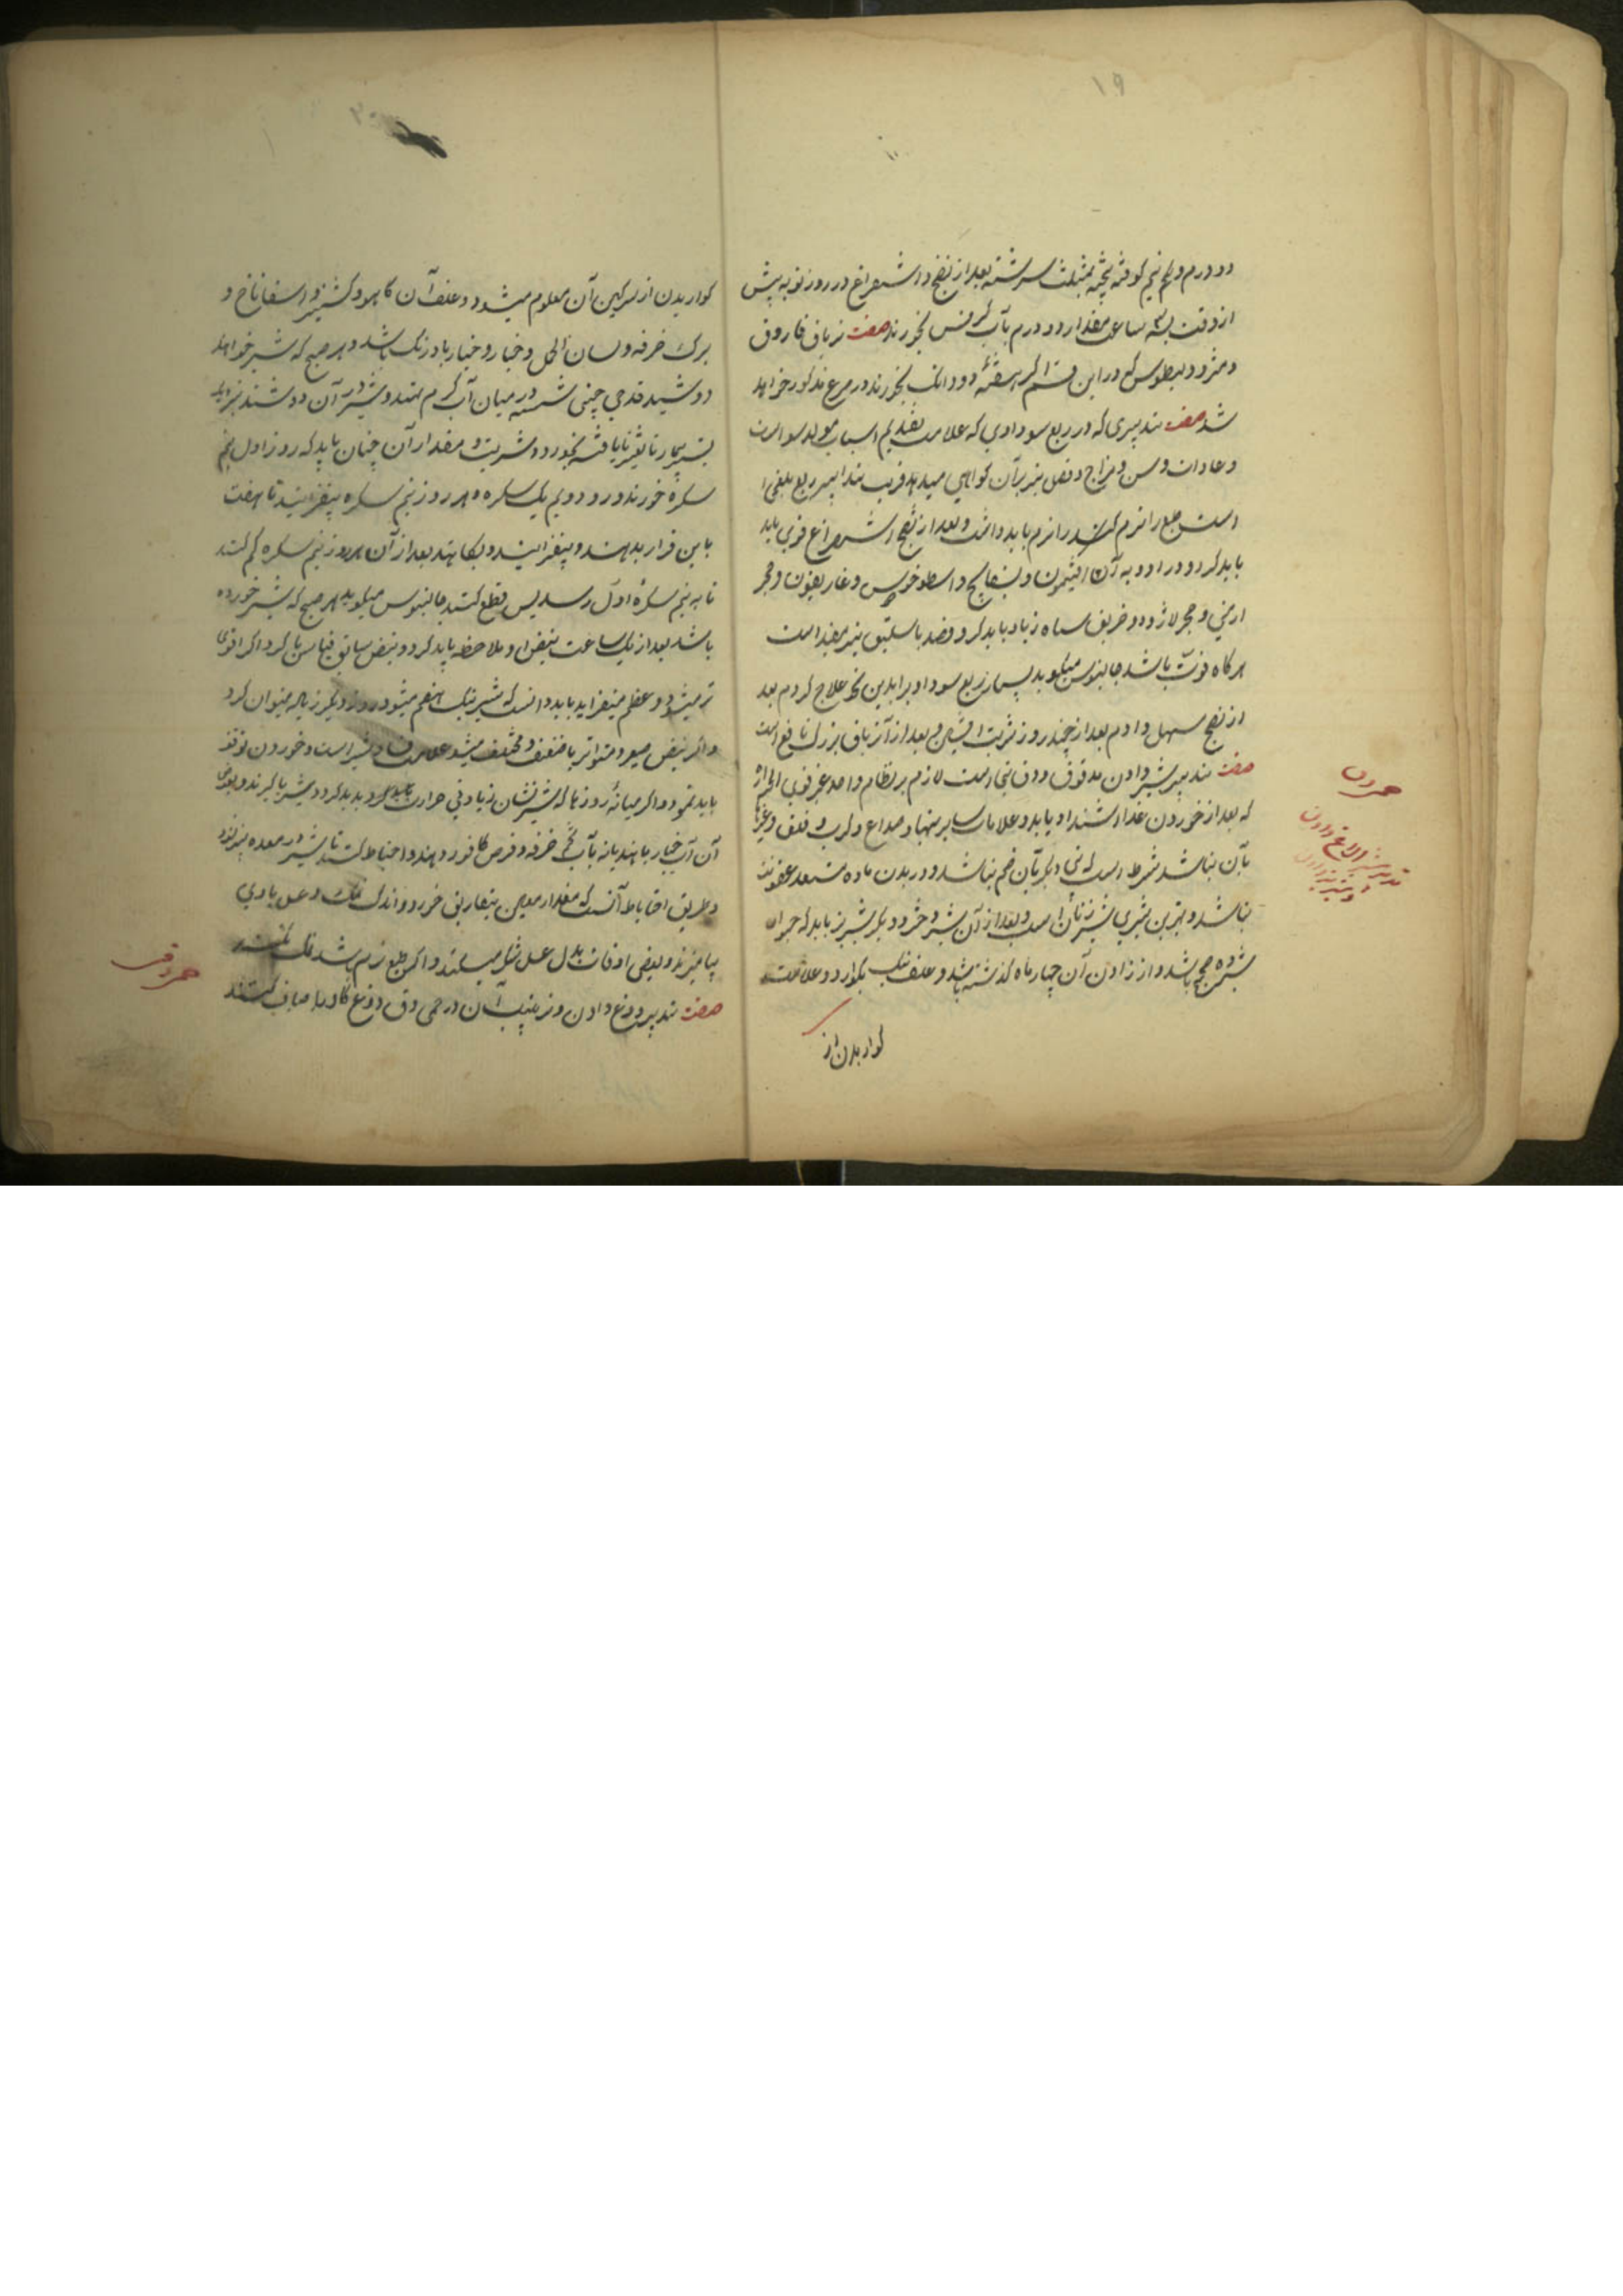 ۱۹
دو درم و یکم نیم کوفته پخته بمثلث سرشته بعد از نضج و استفراغ در روز نوبه پیش
از وقت بسه ساعت مقدار دو درم بآب کرفس بخورند صفت تریاق فاروق
و مثرودیطوس که در این قسم اگر هفته دو دانگ بخورند در مرغ مذکور خواهد
شد صفت تدبیری که در ربع سوداوی که علامت تقدیم اسباب مولد سودا است
و عادات و سن و مزاج و فصل نیز برآن کواهی میدهد قریب بتدابیر ربع بلغمی
است طبع را نرم باید داشت و بعد از نضج استفراغ قوی باید
باید کرد و در ادویه آن افتیمون و بسفایج و اسطوخودوس و غاریقون و حجر
ارمنی و حجر لاژورد و خربق سیاه زیاد باید کرد و فصد باسلیق نیز مفید است
هرگاه قوت باشد جالینوس میگوید بسیار ربع سوداوی را بدین نحو علاج کردم بعد
از نضج مسهل دادم بعد از چند روز شربت افسنتین و بعد از آن تریاق بزرگ نافع است
صفت تدبیر شیر دادن مدقوق و دق تبی است لازم بر نظام واحد غیر قوی الحراره
که بعد از خوردن غذا اشتداد یابد و علامات سایر تبها و صداع و کرب و قلق و غیرها
بآن نباشد شرط است که تبی دیگر بآن ضم نباشد و در بدن ماده مستعد عفونت
نباشد و بهترین شیری شیر زنان است و بعد از آن شیر خر و دیگر شیر بز باید که جوان
باشد و از زادن آن چهار ماه گذشته باشد و علف نیک بگوارد و علامت
گواریدن از
حمی دق
تدبیر شیر الاغ دادن
گواریدن از سرگین آن معلوم میشود و علف آن کاهو و کشنیز و اسفاناخ و
برگ خرفه و لسان الحمل و خیار و خیار بادرنگ باشد و هر صبح که شیر خواهند
دوشید قدحی چینی شسته در میان آب گرم نهند و شیر در آن دوشند نزدیک
بستر بیمار تا تغیر نایافته بخورد و شربت و مقدار آن چنان باید که روز اول نیم
سکره خورند و روز دویم یک سکره و هر روز نیم سکره بیفزایند تا هفت
باین قرار بدهند و بیفزایند و بکاهند بعد از آن هر روز نیم سکره کم کنند
تا به نیم سکره اول رسد پس قطع کنند جالینوس میگوید هر صبح که شیر خورده
باشد بعد از یک ساعت نبض او ملاحظه باید کرد و بنبض سابق قیاس باید کرد اگر اقوی
تر میشود و عظم میفزاید باید دانست که شیر نیک هضم میشود روز دیگر زیاده میتوان کرد
و اگر نبض صغیر و متواتر با ضعف و مختلف میشود علامت فساد شیر است و خوردن توقف
باید نمود و اگر میانه روزها که شیر زیادتی حرارت
آن آب خیار یا هندیانه بآب تخم خرفه و قرص کافور دهند و احتیاط کنند تا شیر در معده پنیر نشود
و طریق احتیاط آنست که مقدار معین بتفاریق خورد و اندک نمک و عسل با وی
بیامیزند و بعضی اوقات بدل عسل شکر میکنند و اگر طبع نرم باشد نمک نکنند
صفت تدبیر دوغ دادن و ترتیب آن در حمی دق دوغ گاو را صاف کنند
حمی دق